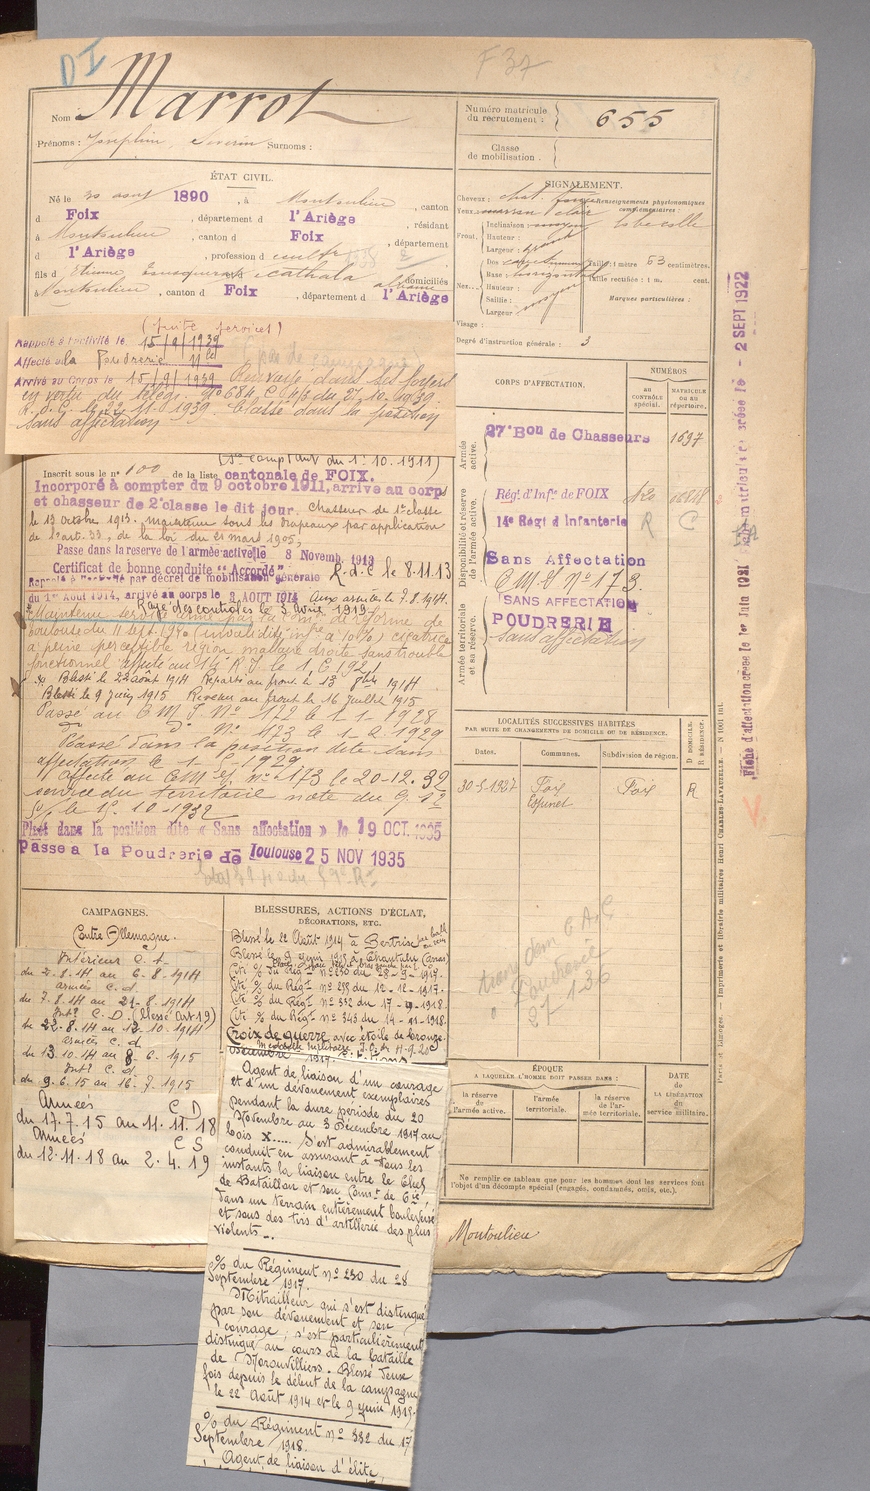 DI
F 37
Nom Marrot
Prénoms : Josephin, Severin Surnoms :
Numéro matricule du recrutement : 655
Classe de mobilisation :
ÉTAT CIVIL.
Né le 30 août 1890, à Montoulieu, canton
d Foix, département d l'Ariège, résidant
à Montoulieu, canton d Foix, département
d l'Ariège, profession de cultr
fils d Etienne, et d Cathala domiciliés
à Montoulieu, canton d Foix, département d l'Ariège
SIGNALEMENT.
Cheveux : chat.
Yeux
Renseignements physionomiques complémentaires :
Front.
Inclinaison : moyen
Hauteur :
Largeur : grande
Nez
Dos
Base : horizontal
Hauteur :
Saillie :
Largeur : moyen
Taille : 1 mètre 63 centimètres.
Taille rectifiée : 1 m. cent.
Marques particulières :
Visage :
Degré d'instruction générale : 3
Rappelé à l'activité le 15/9/1939
Affecté à la Poudrerie
Arrivé au Corps le 15/9/1939 Renvoyé dans ses foyers
en vertu du télég. n° 684 du 27.10.1939.
11.1939. Classé dans la position
sans affectation
(Se comptant du 1er 10.1911)
Inscrit sous le n° 100 de la liste cantonale de FOIX.
Incorporé à compter du 9 octobre 1911, arrivé au corps
et chasseur de 2e classe le dit jour. Chasseur de 1e classe
le 13 octobre 1913. maintenu sous les drapeaux par application
de l'art. 33, de la loi du 21 mars 1905,
Passé dans la réserve de l'armée active le 8 Novemb. 1913
Certificat de bonne conduite "Accordé" L.d.C le 8.11.13
Rappelé à l'activité par décret de mobilisation générale
du 1er Août 1914, arrivé au corps le 3 AOUT 1914 Aux armées le 7.8.14.
Rayé des controles le 3 Avril 1919
Maintenu service armé par la Comon de réforme de
Toulouse du 11 Sept. (invalidité infre à 10%) cicatrice
à peine perceptible région malaire droite sans trouble
fonctionnel affecté au 14e R.I. le 1.6.1921
Blessé le 22 août 1914 Reparti au front le 13 8bre 1914
Blessé le 9 Juin 1915 Revenu au front le 16 Juillet 1915
Passé au C M I. N° 172 le 1-1-1928
N° 173 le 1-2-1929
Classé dans la position dite sans
affectation le 1-5-1929
Affecté au C M et n° 173 le 20-12.32
service du territoire note du 9.12
le 15.10-1932
Placé dans la position dite « Sans affectation » le 19 OCT. 1935
Passé à la Poudrerie de Toulouse 25 NOV 1935
CORPS D'AFFECTATION.
NUMÉROS
AU CONTRÔLE SPÉCIAL.
MATRICULE OU AU RÉPERTOIRE.
Armée active.
27e Bon de Chasseurs 1697
Disponibilité et réserve de l'armée active.
Régt d'Infie de FOIX
14e Régt d'Infanterie R C
Sans Affectation
C M et N° 173.
Armée territoriale et sa réserve.
SANS AFFECTATION
POUDRERIE
Sans affectation
LOCALITÉS SUCCESSIVES HABITÉES
PAR SUITE DE CHANGEMENTS DE DOMICILE OU DE RÉSIDENCE.
Dates. Communes. Subdivision de région. D DOMICILE. R RÉSIDENCE.
30-5-1927 Foix Foix R
Espinet
Poudrerie
27-1-36
Fiche d'affectation créée le 1er Juin 1921
2 SEPT 1922
Paris et Limoges. — Imprimerie et librairie militaires Henri CHARLES-LAVAUZELLE.
CAMPAGNES.
Contre Allemagne.
Intérieur C. S.
du 2.8.14 au 6-8-1914
armées C. d.
du 7.8.14 au 21-8-1914
Intr C. D. (blessé art 19)
du 22.8.14 au 12-10-1914
armées C. d.
du 13.10.14 au 8.6.1915
Intr C. d.
du 9.6.15 au 16-7-1915
Armées C D
du 17.7.15 au 11.11.18
Armées C S
du 12.11.18 au 2.4.19
BLESSURES, ACTIONS D'ÉCLAT, DÉCORATIONS, ETC.
Blessé le 22 Août 1914 à Bertrix
Blessé le 9 Juin 1915 à
Cité % du Régt N° 230 du 28-9-1917.
Cité % du Régt N° 298 du 12-12-1917.
Cité % du Régt N° 332 du 17-9-1918.
Cité % du Régt N° 343 du 14-11-1918.
Croix de guerre avec étoile de bronze.
Médaille Militaire J.O. du 11-9-20
Agent de liaison d'un courage
et d'un dévouement exemplaires
pendant la dure période du 20
Novembre au 3 Décembre 1917 au
bois X..... S'est admirablement
conduit en assurant à tous les
instants la liaison entre le Chef
de Bataillon et son Comt de Cie,
dans un terrain entièrement bouleversé
et sous des tirs d'artillerie des plus
violents..
% du Régiment n° 230 du 28
Septembre 1917.
Mitrailleur qui s'est distingué
par son dévouement et son
courage, s'est particulièrement
distingué au cours de la bataille
de Moronvilliers. Blessé deux
fois depuis le début de la campagne
le 22 Août 1914 et le 9 juin 1915.
% du Régiment n° 332 du 17
Septembre 1918.
Agent de liaison d'élite,
ÉPOQUE
A LAQUELLE L'HOMME DOIT PASSER DANS :
la réserve de l'armée active.
l'armée territoriale.
la réserve de l'armée territoriale.
DATE de la LIBÉRATION du service militaire.
Ne remplir ce tableau que pour les hommes dont les services font
l'objet d'un décompte spécial (engagés, condamnés, omis, etc.).
Montoulieu